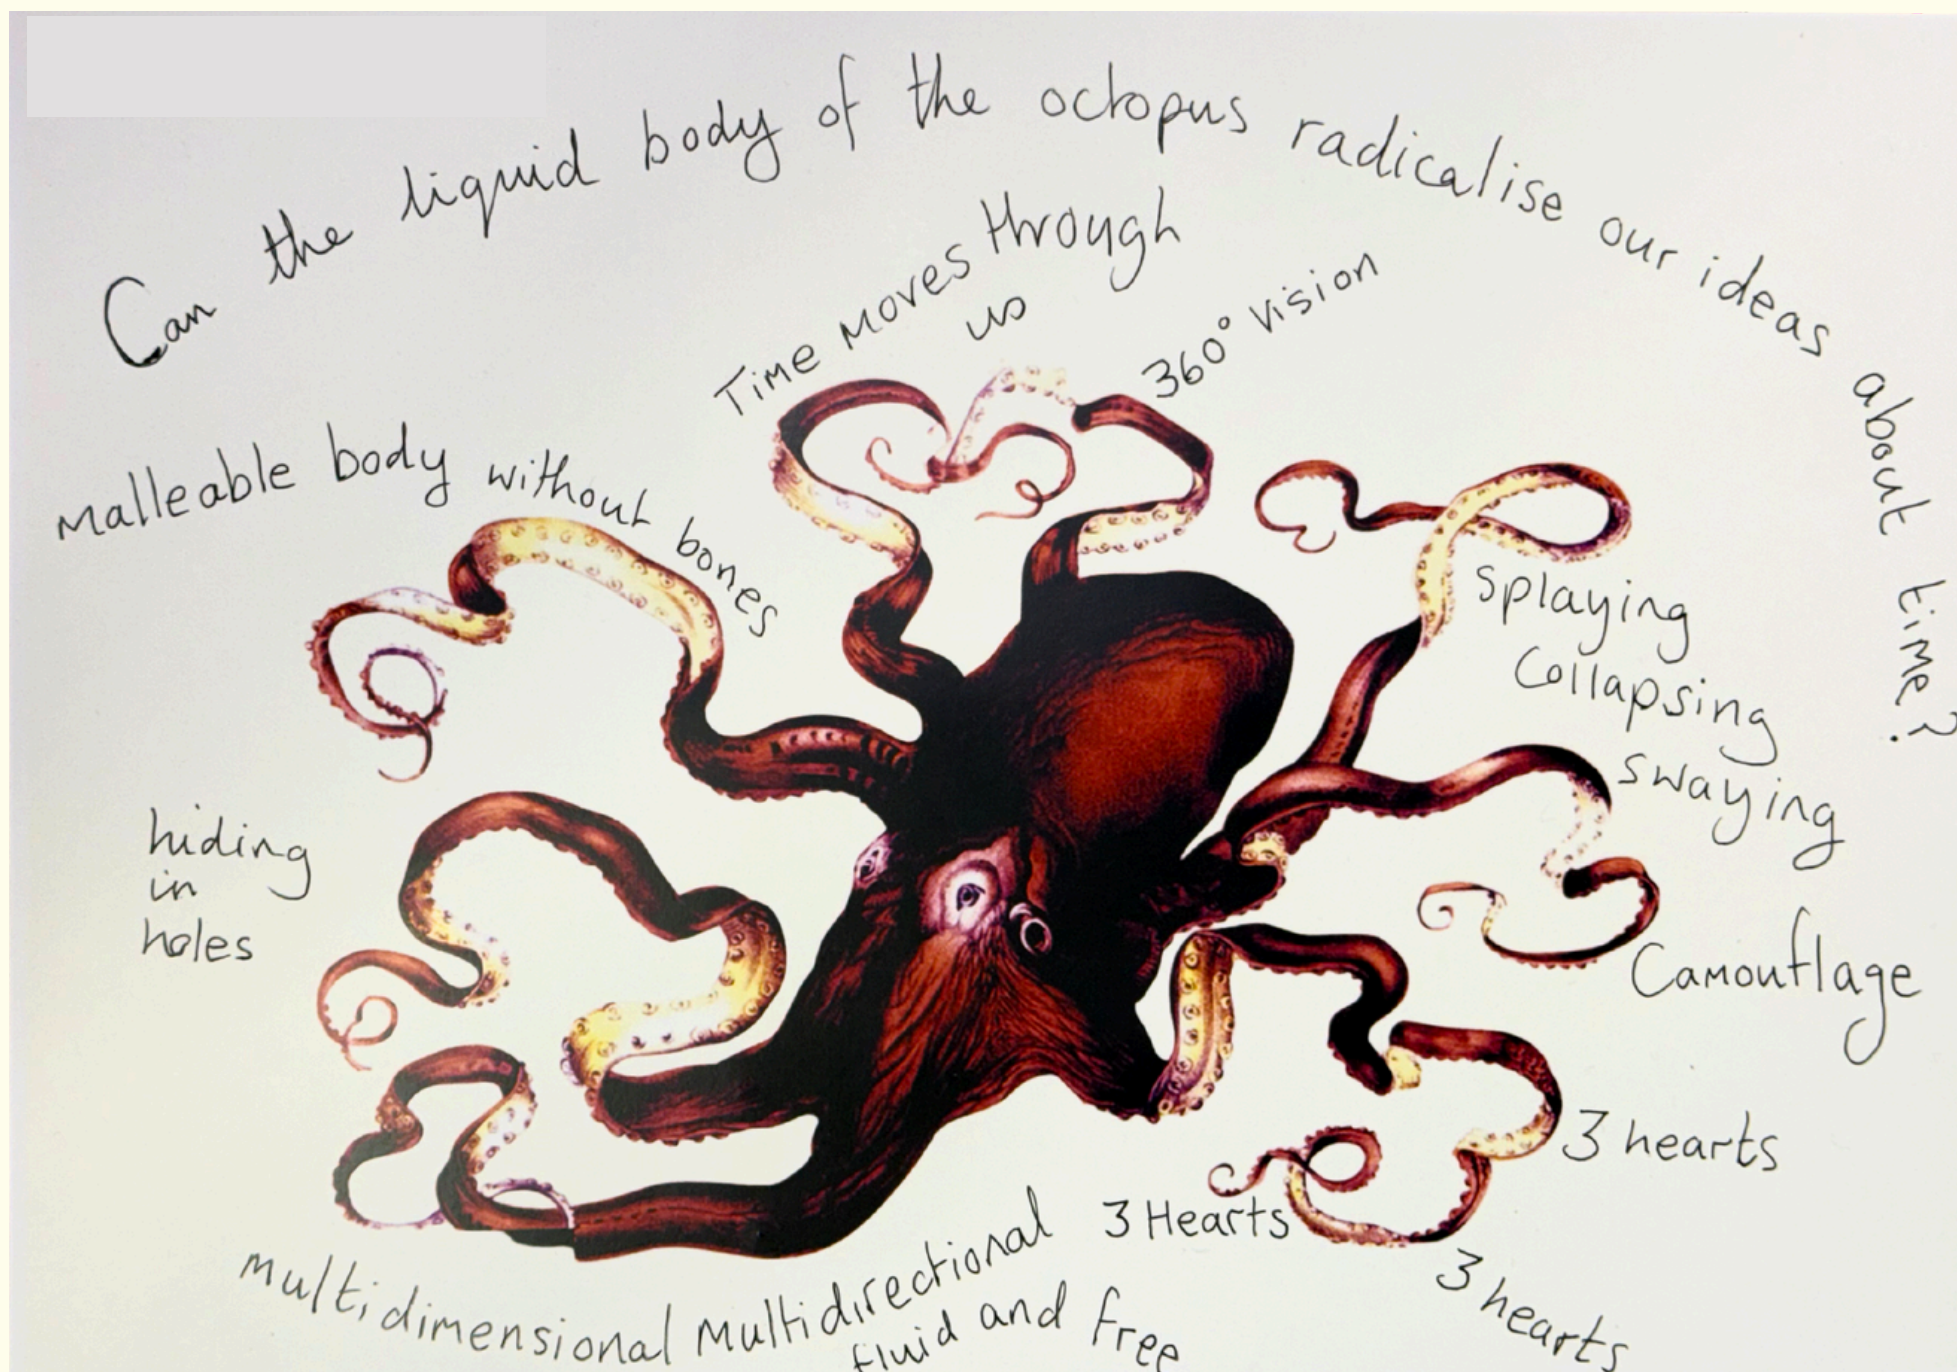 Can the liquid body of the octopus radicalise our ideas about time?
Time moves through
us
360° vision
malleable body without bones
splaying
Collapsing
swaying
hiding
in
holes
Camouflage
3 hearts
3 Hearts
3 hearts
multidimensional multidirectional
fluid and free